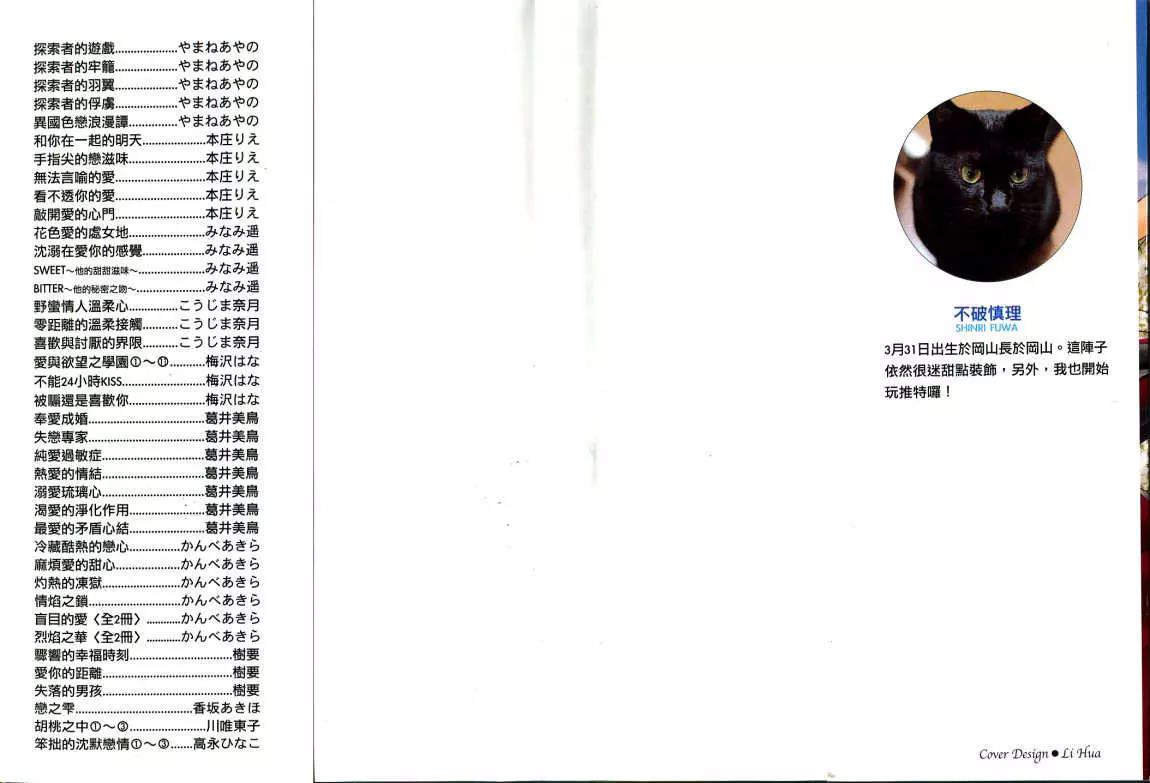 探索者的遊戲....................やまねあやの
探索者的牢籠....................やまねあやの
探索者的羽翼....................やまねあやの
探索者的俘虜....................やまねあやの
異國色戀浪漫譚................やまねあやの
和你在一起的明天....................本庄りえ
手指尖的戀滋味........................本庄りえ
無法言喻的愛............................本庄りえ
看不透你的愛............................本庄りえ
敲開愛的心門............................本庄りえ
花色愛的處女地........................みなみ遥
沈溺在愛你的感覺....................みなみ遥
SWEET～他的甜甜滋味～.....................みなみ遥
BITTER～他的秘密之吻～......................みなみ遥
野蠻情人溫柔心................こうじま奈月
零距離的溫柔接觸...........こうじま奈月
喜歡與討厭的界限...........こうじま奈月
愛與欲望之學園①～⑪...........梅沢はな
不能24小時KISS..........................梅沢はな
被騙還是喜歡你........................梅沢はな
奉愛成婚....................................葛井美鳥
失戀專家....................................葛井美鳥
純愛過敏症................................葛井美鳥
熱愛的情結................................葛井美鳥
溺愛琉璃心................................葛井美鳥
渴愛的淨化作用........................葛井美鳥
最愛的矛盾心結........................葛井美鳥
冷藏酷熱的戀心................かんべあきら
麻煩愛的甜心....................かんべあきら
灼熱的凍獄........................かんべあきら
情焰之鎖............................かんべあきら
盲目的愛〈全2冊〉...........かんべあきら
烈焰之華〈全2冊〉...........かんべあきら
驟響的幸福時刻................................樹要
愛你的距離........................................樹要
失落的男孩........................................樹要
戀之雫.....................................香坂あきほ
胡桃之中①～③........................川唯東子
笨拙的沈默戀情①～③.......高永ひなこ
不破慎理
SHINRI FUWA
3月31日出生於岡山長於岡山。這陣子
依然很迷甜點裝飾，另外，我也開始
玩推特囉！
Cover Design ● Li Hua